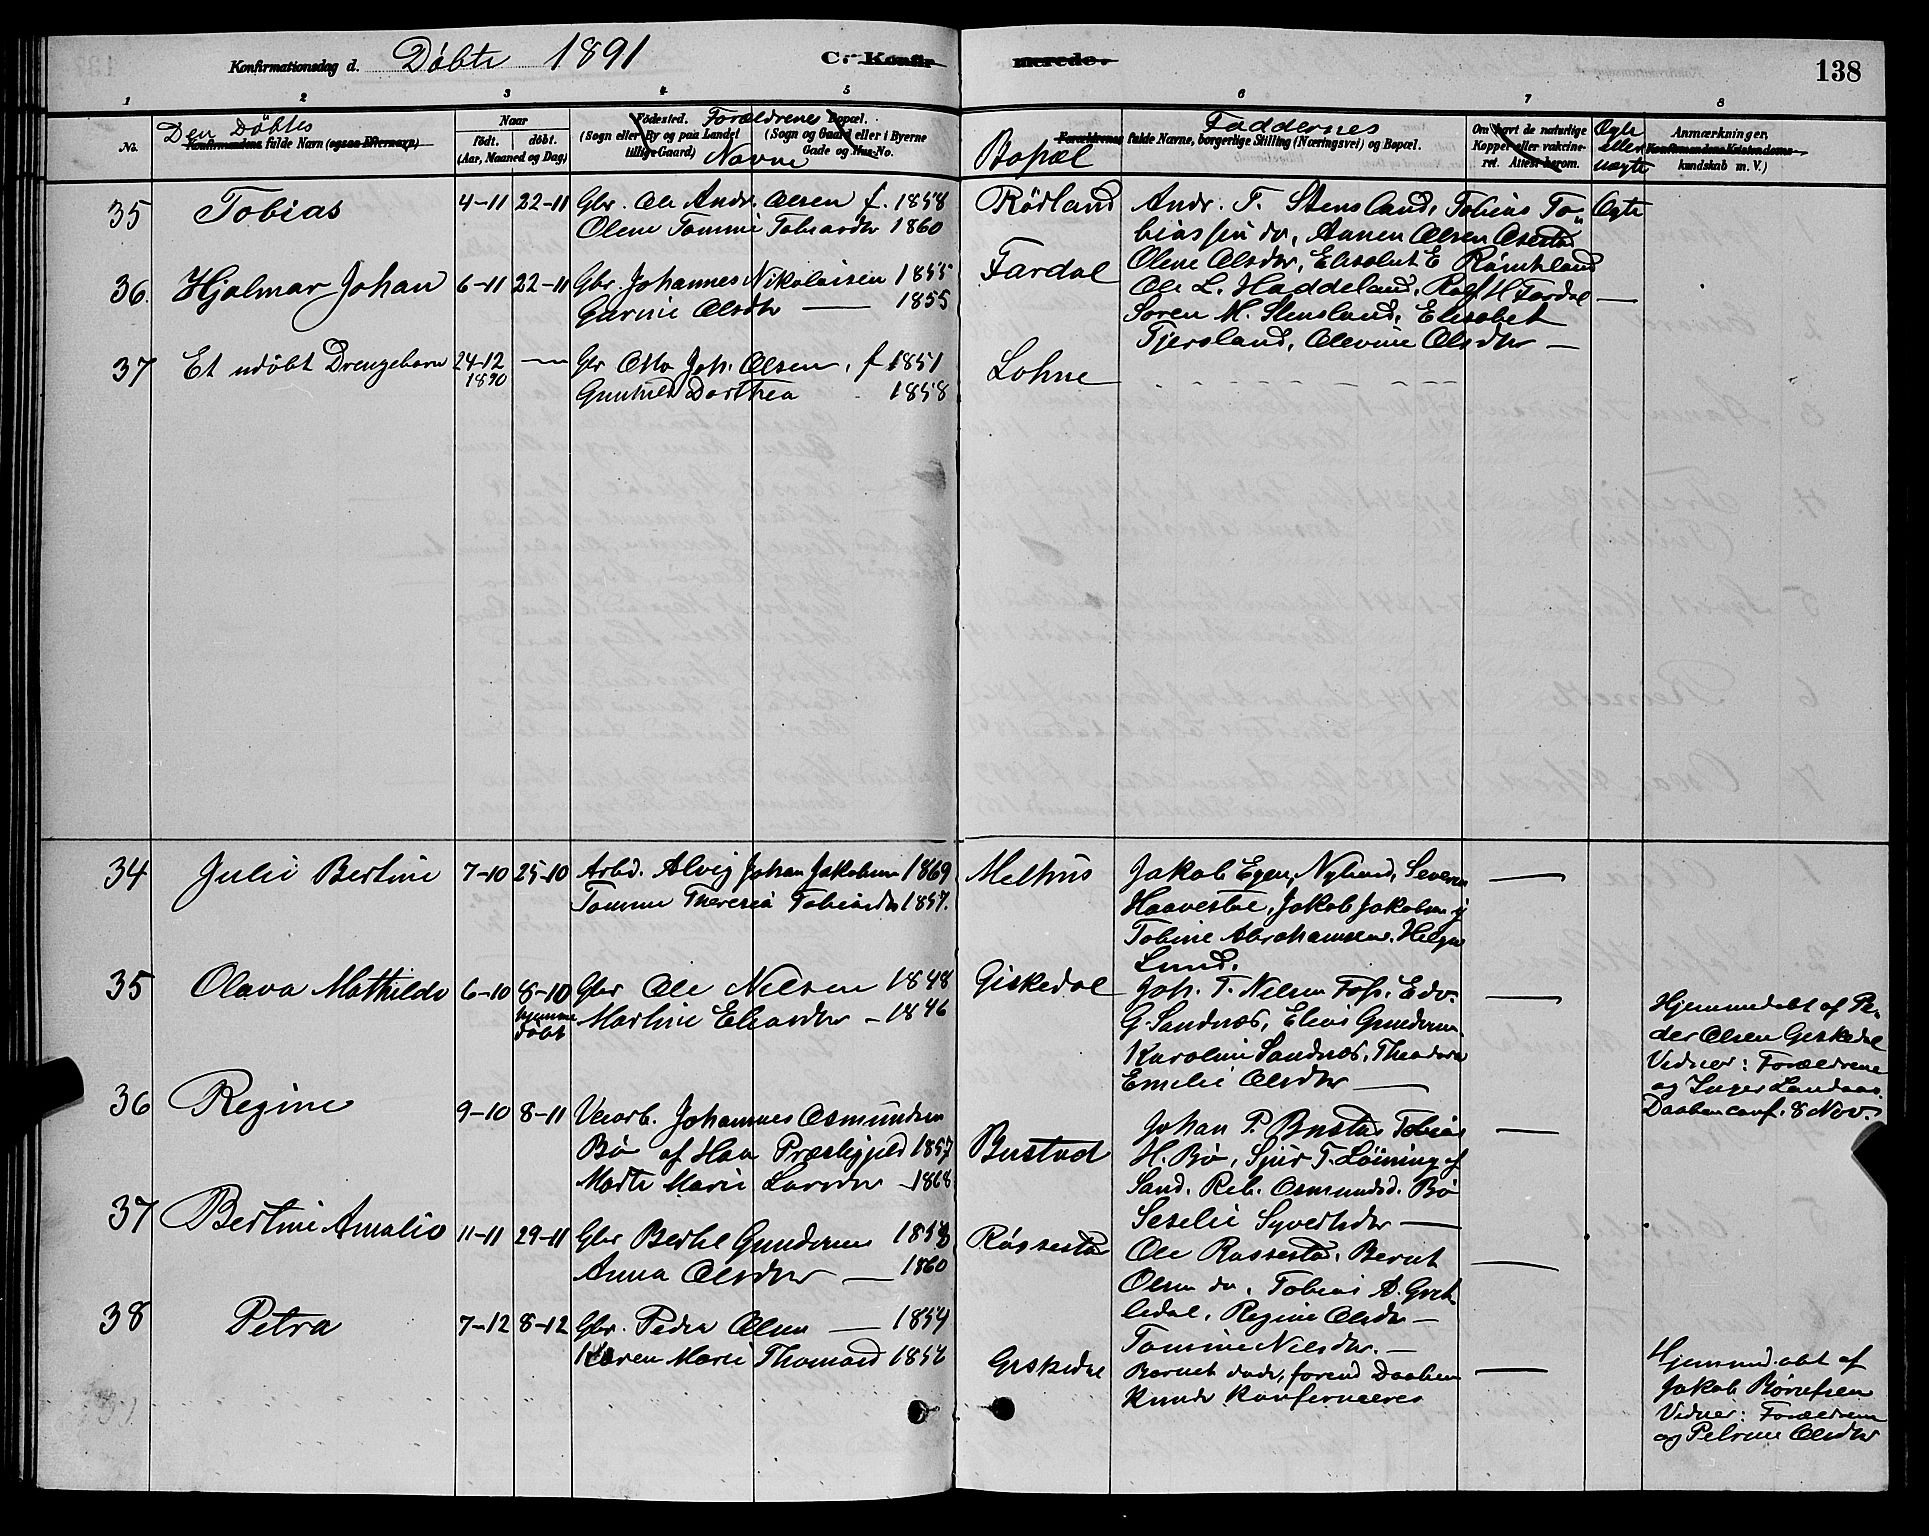 Konfirmationsdag d. Döbte 1891 C. Konfirmerede. 138
1 2 3 4 5 6 7 8
No. Den Döbtes Konfirmandens fulde Navn (ogsaa Efternavn) Naar født. døbt. (Aar, Maaned og Dag) Fødested. (Sogn eller By og paa Landet tillige Gaard) Forældrenes Navne Bopæl. (Sogn og Gaard eller i Byerne Gade og Hus-No. Bopæl Forældrenes Faddernes fulde Navne, borgerlige Stilling (Næringsvei) og Bopæl. Om havt de naturlige Kopper eller vakcineret. Attest herom. Ægte eller uægte Anmærkninger, Konfirmandens Kristendomskundskab m. V.)
35 Tobias 4-11 22-11 Gbr. Ole Andr. Olsen f. 1858 Rödland Andr. T. Stensland, Tobias To- Ægte
Olene Tomine Tobiasdtr 1860 biassen do, Aanen Olsen
Olene Olsdtr, Elisabet E
36. Hjalmar Johan 6-11 22-11 Gbr. Johannes Nikolaisen 1855 Fardal Ole L. Haddeland, Rolf H Fardal —
Gurine Olsdtr — 1855 Sören M. Stensland, Elisabet
Tjersland, Olevine Olsdtr —
37 Et udöbt Drengebarn 24-12 1890 — Gbr Otto Joh. Olsen, f 1851 Lohne
Gunhild Dorthea 1858
34 Julie Bertine 7-10 25-10 Arbd. Alvig Johan Jakobsen 1869 Melhus Jakob Egen, Nylund, Severin —
Tomine Theresia Tobiasdtr 1857. Haavestøl, Jakob Jakobsen
Tobine Abrahamsen, Helga
Lund.
35 Olava Mathilde 6-10 8-10 hjemme döbt Gbr Ole Nilsen 1848 Giskedal Joh. T. Nilsen Fos. Edv. —
Martine Eliasdtr - 1846 G. Sandnes, Elias Gundersen
Karoline Sandnes, Theodora
Emelie Olsdtr —
Hjemmedöbt af Pe-
der Olsen Giskedal
Vidner: Forældrene
og Inger Landaas.
Daaben conf. 8 Nov.
36 Regine 9-10 8-11 Veiarb. Johannes Osmundsen Bustad Johan P. Bustad, Tobias —
Bö af Haa Præstegjeld 1857 H. Bö, Sjur T. Löining af
Marte Marie Larsdtr - 1868 Sand. Reb. Osmundsd. Bö
Seselie Syvertsdtr —
37 Bertine Amalie 11-11 29-11 Gbr Berthel Gundersen 1858 Røssestad Ole Rossestad, Bernt —
Anna Olsdtr — 1860 Olsen do, Tobias A.
Regine Olsdtr —
Tomine Nilsdtr. —
38 Petra 7-12 8-12 Gbr. Peder Olsen — 1854 Giskedal Barnet döde, forend Daaben —
Karen Marie Thomasd kunde konfirmeres
Hjemmedöbt af
Jakob Börufsen
Vidner: Forældrene
og Petrine Olsdtr